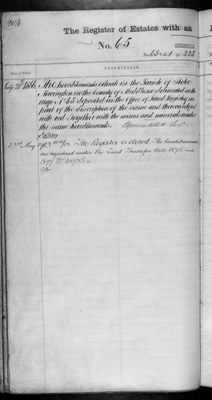 The Register of Estates with an
No. 65
DESCRIPTION.
Date of Entry
July 25th 1866 The hereditaments situate in the Parish of Stoke
Newington in the County of Middlesex delineated on the
map No 65 deposited in the Office of Land Registry as
part of the description of the same and thereon edged
with red Together with the mines and minerals under
the same hereditaments.
23rd May 1903 The Register is closed. The hereditaments
are registered under the Land Transfer Acts 1875 and
1897